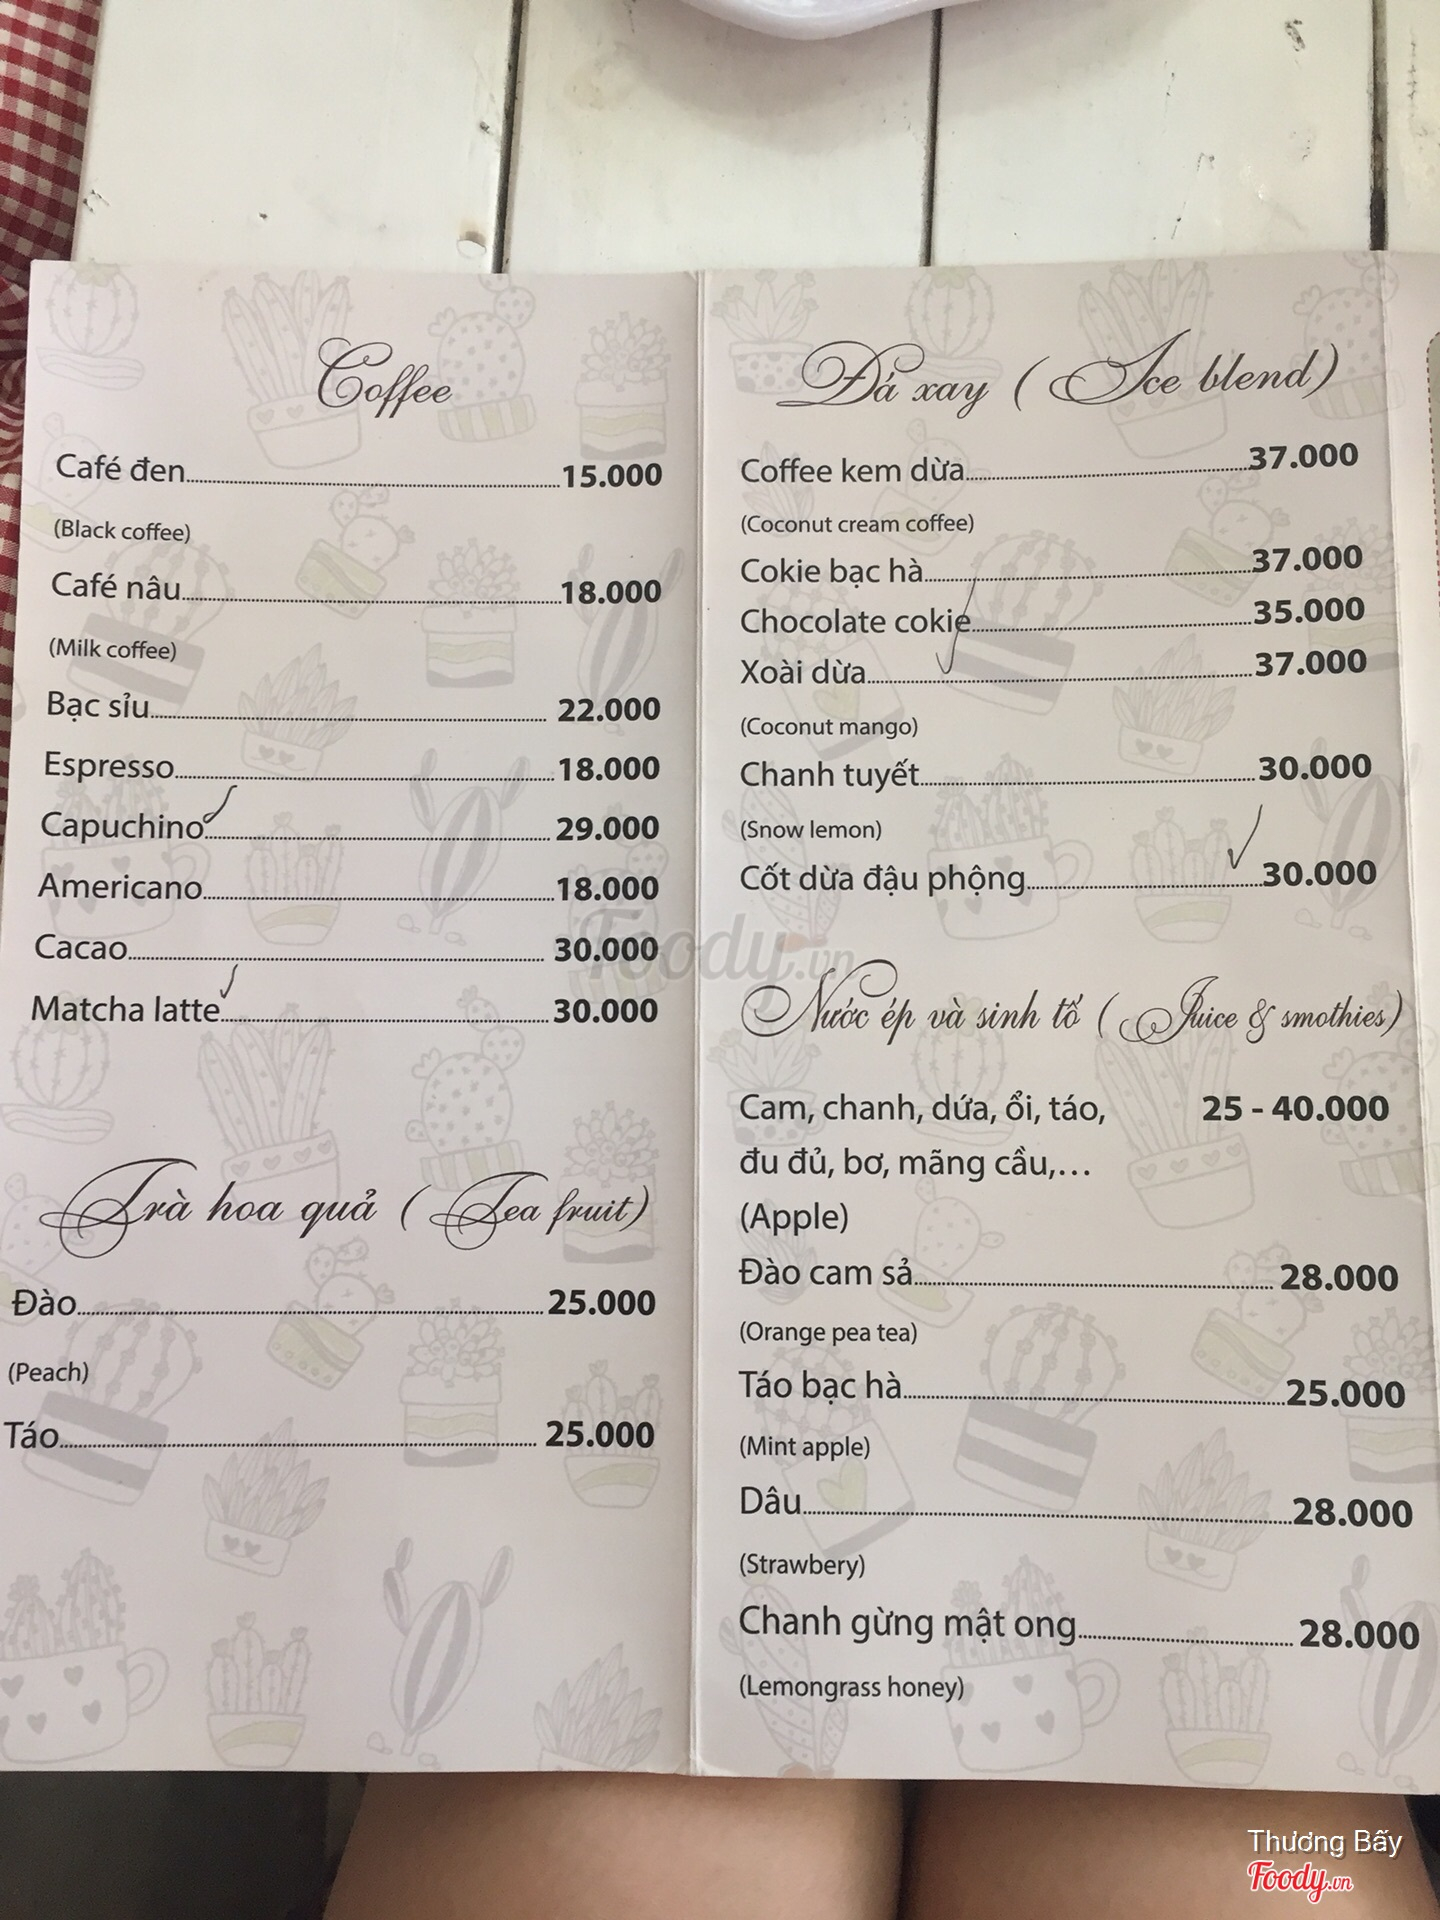 Coffee
Café đen 15.000
(Black coffee)
Café nâu 18.000
(Milk coffee)
Bạc sỉu 22.000
Espresso 18.000
Capuchino 29.000
Americano 18.000
Cacao 30.000
Matcha latte 30.000
Trà hoa quả ( Tea fruit)
Đào 25.000
(Peach)
Táo 25.000
Đá xay ( Ice blend)
Coffee kem dừa 37.000
(Coconut cream coffee)
Cokie bạc hà 37.000
Chocolate cokie 35.000
Xoài dừa 37.000
(Coconut mango)
Chanh tuyết 30.000
(Snow lemon)
Cốt dừa đậu phộng 30.000
Nước ép và sinh tố ( Juice & smothies)
Cam, chanh, dứa, ổi, táo, 25 - 40.000
đu đủ, bơ, mãng cầu,...
(Apple)
Đào cam sả 28.000
(Orange pea tea)
Táo bạc hà 25.000
(Mint apple)
Dâu 28.000
(Strawbery)
Chanh gừng mật ong 28.000
(Lemongrass honey)
Foody.vn
Thương Bấy
Foody.vn